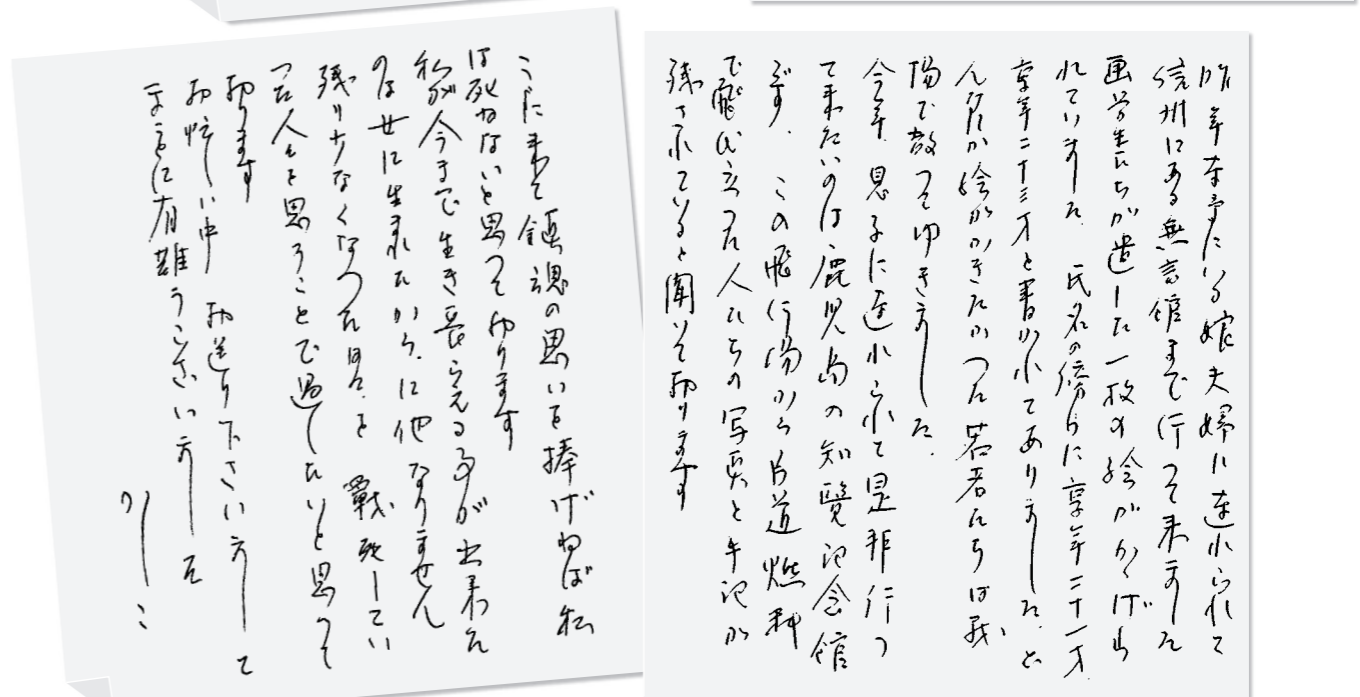 昨年東京にいる娘夫婦に連れられて
信州にある無言館まで行って来ました
画学生たちが遺した一枚の絵がかゝげら
れていました 氏名の傍らに享年二十一才、
享年二十三才と書かれてありました。と
んなにか絵がかきたかつた若者たちは戦
場で散ってゆきました。
今年、息子に連れられて是非行つ
て来たいのは鹿児島の知覧記念館
です、この飛行場から片道燃料
で飛び立つた人たちの写真と手記が
残されていると聞いて切ります
こゝに来て鎮魂の思いを捧げねば私
は死ねないと思って切ります
私が今まで生き長らえる事が出来た
のは女に生まれたから、に他なりません
残り少なくなつた日々を 戦死してい
つた人を思うことで過したいと思って
切ります
お忙しい中 お送り下さいまして
まことに有難うございました